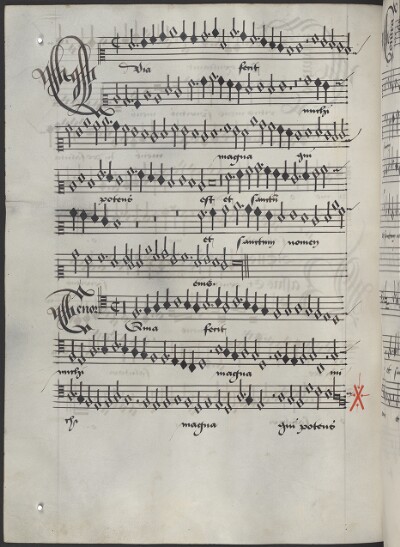 Quia fecit
michi
magna qui
potens est et sanctu
et sanctum nomen
eius.
Tenor
Quia fecit
michi magna mi
chi magna qui potens